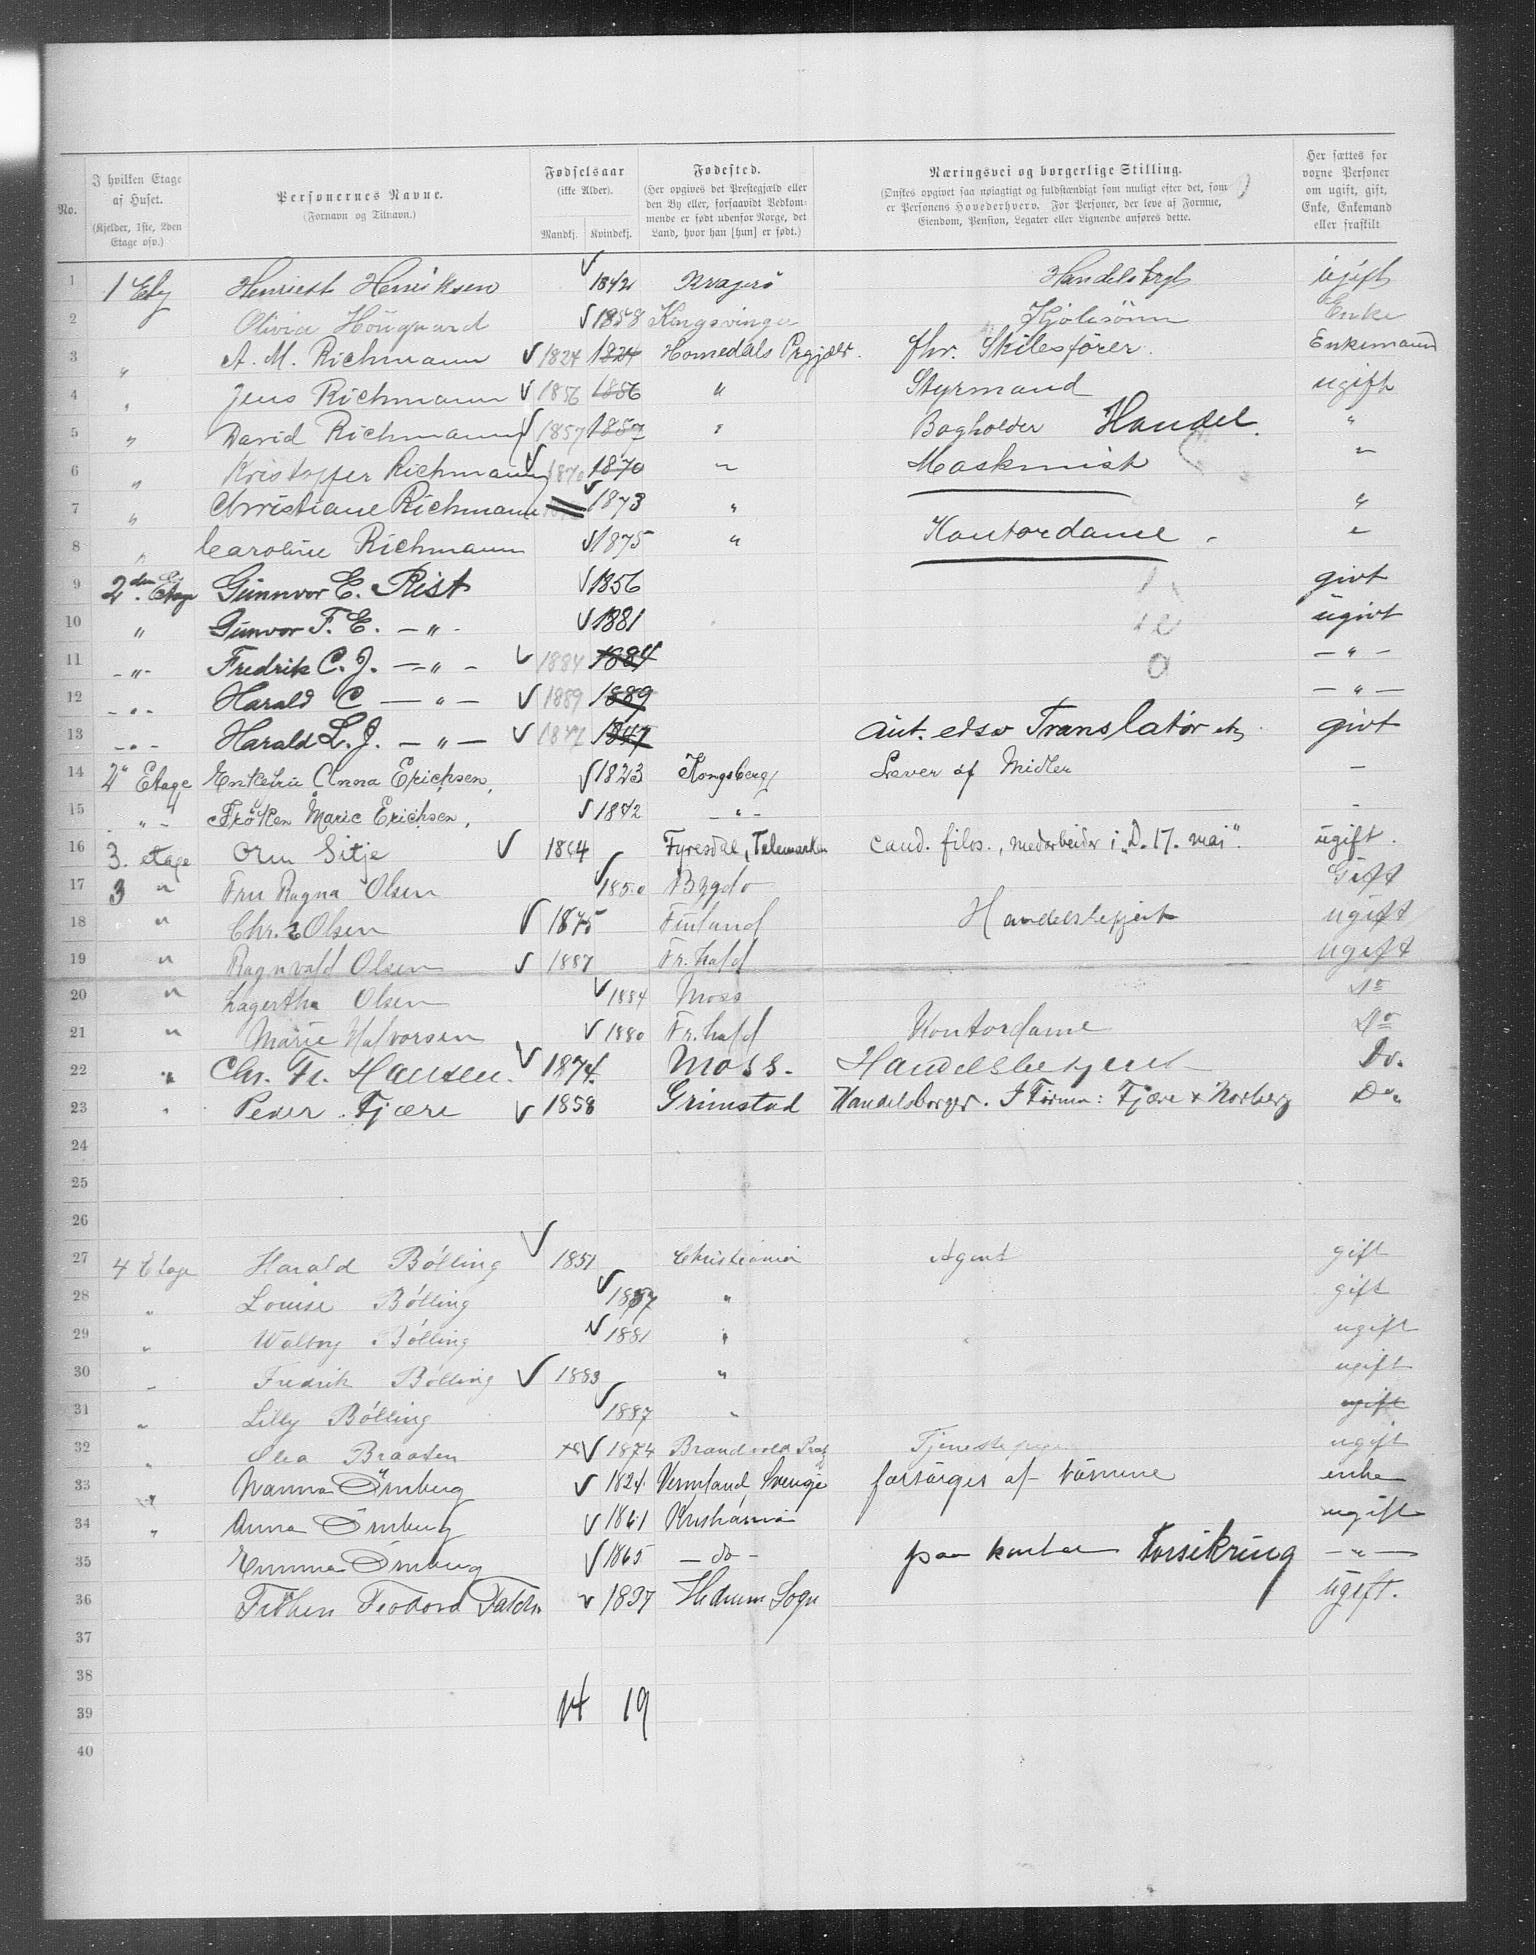 No.
I hvilken Etage af Huset. (Kjelder, 1ste, 2den Etage osv.)
Personernes Navne. (Fornavn og Tilnavn.)
Fødselsaar (ikke Alder). Mandkj. Kvindekj.
Fødested. (Her opgives det Prestegjæld eller den By eller, forsaavidt Vedkommende er født udenfor Norge, det Land, hvor han [hun] er født.)
Næringsvei og borgerlige Stilling. (Ønskes opgivet saa nøiagtigt og fuldstændigt som muligt efter det, som er Personens Hovederhverv. For Personer, der leve af Formue, Eiendom, Pension, Legater eller Lignende anføres dette.
Her sættes for voxne Personer om ugift, gift, Enke, Enkemand eller fraskilt
1 1 Etg Henriett Henriksen 1842 Kragerø ugift
2 Olivia Hougaard 1858 Kongsvinger Enke
3 " A. M. Richmann 1824 1824 Homedals Prgjæld. fhr. Skibsfører. Enkemand
4 " Jens Richmann 1856 1856 " Styrmand ugift
5 " David Richmann 1857 1857 " Bogholder Handel. "
6 " Kristoffer Richmann 1870 1870 " Maskinist "
7 " Christiane Richmann 1873 " "
8 " Caroline Richmann 1875 " Kontordame "
9 2den Etage Gunnvor E. Rist 1856 givt
10 " Gunvor F. E. — " - 1881 ugivt
11 - " - Fredrik C. J. — " - 1884 1884 — " —
12 - " - Harald C — " — 1889 1889 — " —
13 - " - Harald L. J. — " — 1847 1847 aut. edsv Translatør etc. givt
14 2" Etage Enkefru Anna Erichsen, 1823 Kongsberg Lever af Midler —
15 - " - Frøken Marie Erichsen, 1842 - " - -
16 3. etage Orm Sitje 1864 Fyresdal, Telemarken cand. filos., medarbeider i „D. 17. mai". ugift.
17 3 " Fru Ragna Olsen 1850 Bygdø Gift
18 " Chr. Olsen 1875 Finland Handelsbetjent ugift
19 " Ragnvald Olsen 1887 Fr.hald ugift
20 " Lagertha Olsen 1884 Moss do
21 " Marie Halvorsen 1880 Fr.hald Kontordame do
22 " Chr. Fr. Hansen. 1874. Moss. Handelsbetjent Do.
23 " Peder Fjære 1858 Grimstad Handelsborger. I Firma: Fjære & Norberg Do.
24
25
26
27 4 Etage Harald Bölling 1851 Christiania Agent gift
28 " Louise Bölling 1857 " gift
29 " Bölling 1881 " ugift
30 " Fredrik Bölling 1883 " ugift
31 " Lilly Bölling 1887 " ugift
32 " Olea Braaten 1874 Brandvold Prgj Tjenestepige ugift
33 " Nanna Örnberg 1824 Vermland, Sverige forsørges af börnene enke
34 " Anna Örnberg 1861 Kristiania ugift
35 Emma Örnberg 1865 — do — paa kontor Forsikring — " —
36 Fröken Teodora 1837 Hedrum Sogn ugift.
37
38
39 14 19
40